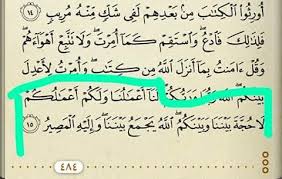 أُورِثُوا۟ ٱلْكِتَٰبَ مِنۢ بَعْدِهِمْ لَفِى شَكٍّ مِّنْهُ مُرِيبٍ ١٤
فَلِذَٰلِكَ فَٱدْعُ ۖ وَٱسْتَقِمْ كَمَآ أُمِرْتَ ۖ وَلَا تَتَّبِعْ أَهْوَآءَهُمْ ۖ
وَقُلْ ءَامَنتُ بِمَآ أَنزَلَ ٱللَّهُ مِن كِتَٰبٍ ۖ وَأُمِرْتُ لِأَعْدِلَ
بَيْنَكُمُ ۖ ٱللَّهُ رَبُّنَا وَرَبُّكُمْ ۖ لَنَآ أَعْمَٰلُنَا وَلَكُمْ أَعْمَٰلُكُمْ ۖ
لَا حُجَّةَ بَيْنَنَا وَبَيْنَكُمُ ۖ ٱللَّهُ يَجْمَعُ بَيْنَنَا ۖ وَإِلَيْهِ ٱلْمَصِيرُ ١٥
٤٨٤